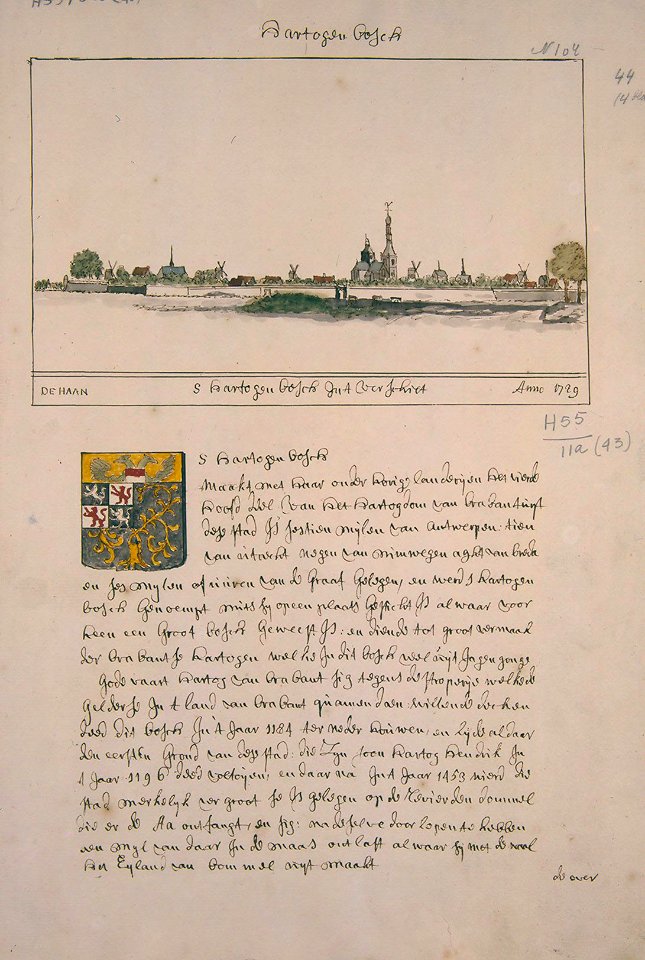 Hartogen bosch
N 104
44
DE HAAN
s Hartogen bosch Int verschiet
Anno 1729
H55
11a (43)
s Hartogen bosch
Maakt met haar onder horige landerijen het vierde
hoofd deel van het Hartogdom van braban turst
dese stad Is sestien mylen van antwerpen: tien
van uitrecht negen van nimwegen aght van breda
en ses mylen of uuren van de Graaf Gelegen, en werd s Hartogen
bosch Genoempt mits sy op een plaats Gesticht Is alwaar voor
heen een Groot bosch Geweest Is: en diende tot groot vermaak
der brabantse Hartogen welke In dit bosch veel tyt Jagen gonge
Gode vaart Hartog van brabant sig tegens de stroperije welke de
Geldersse In t land van brabant quamen doen, willende decken
deed dit bosch In t Jaar 1184 ter neder houwen, en lyde aldaar
den eersten Grond van dese stad: die Zyn soon Hartog Hendrik In
t Jaar 1196 deed voltoijen, en daar na Int Jaar 1453 wierd die
stad merkelyk vergroot se Is gelegen op de Revier den dommel
die er de Aa ontfangt, en sig: na deselve door lopen te hebben
een myl van daar In de maas ontlast alwaar sy met de wal
Het Eyland van bommel uyt maakt
de over